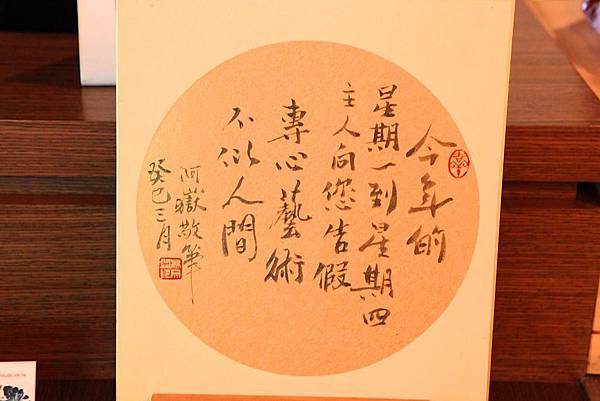 今年的
星期一到星期四
主人向您告假
專心藝術
不似人間
阿嶽敬筆
癸巳三月